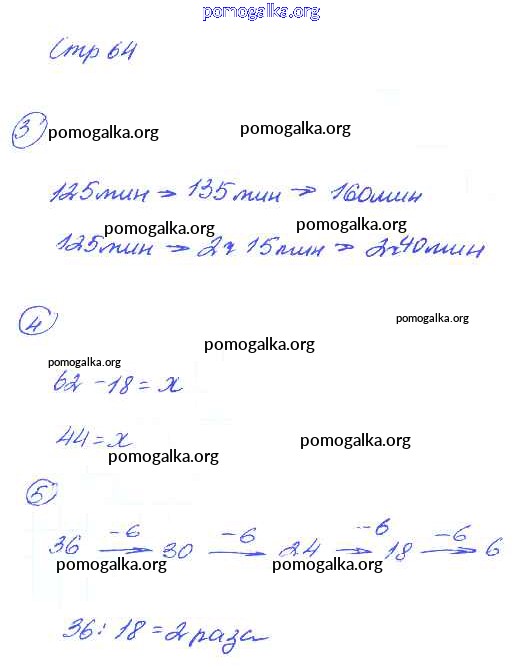 pomogalka.org
Стр 64
3 pomogalka.org pomogalka.org
125мин → 135мин → 160мин
pomogalka.org pomogalka.org
125мин → 2ч 15мин → 2ч40мин
4 pomogalka.org
pomogalka.org
pomogalka.org
62 - 18 = x
44 = x pomogalka.org
pomogalka.org
5
36 -6 → 30 -6 → 24 -6 → 18 -6 → 6
pomogalka.org pomogalka.org
36: 18 = 2 раза